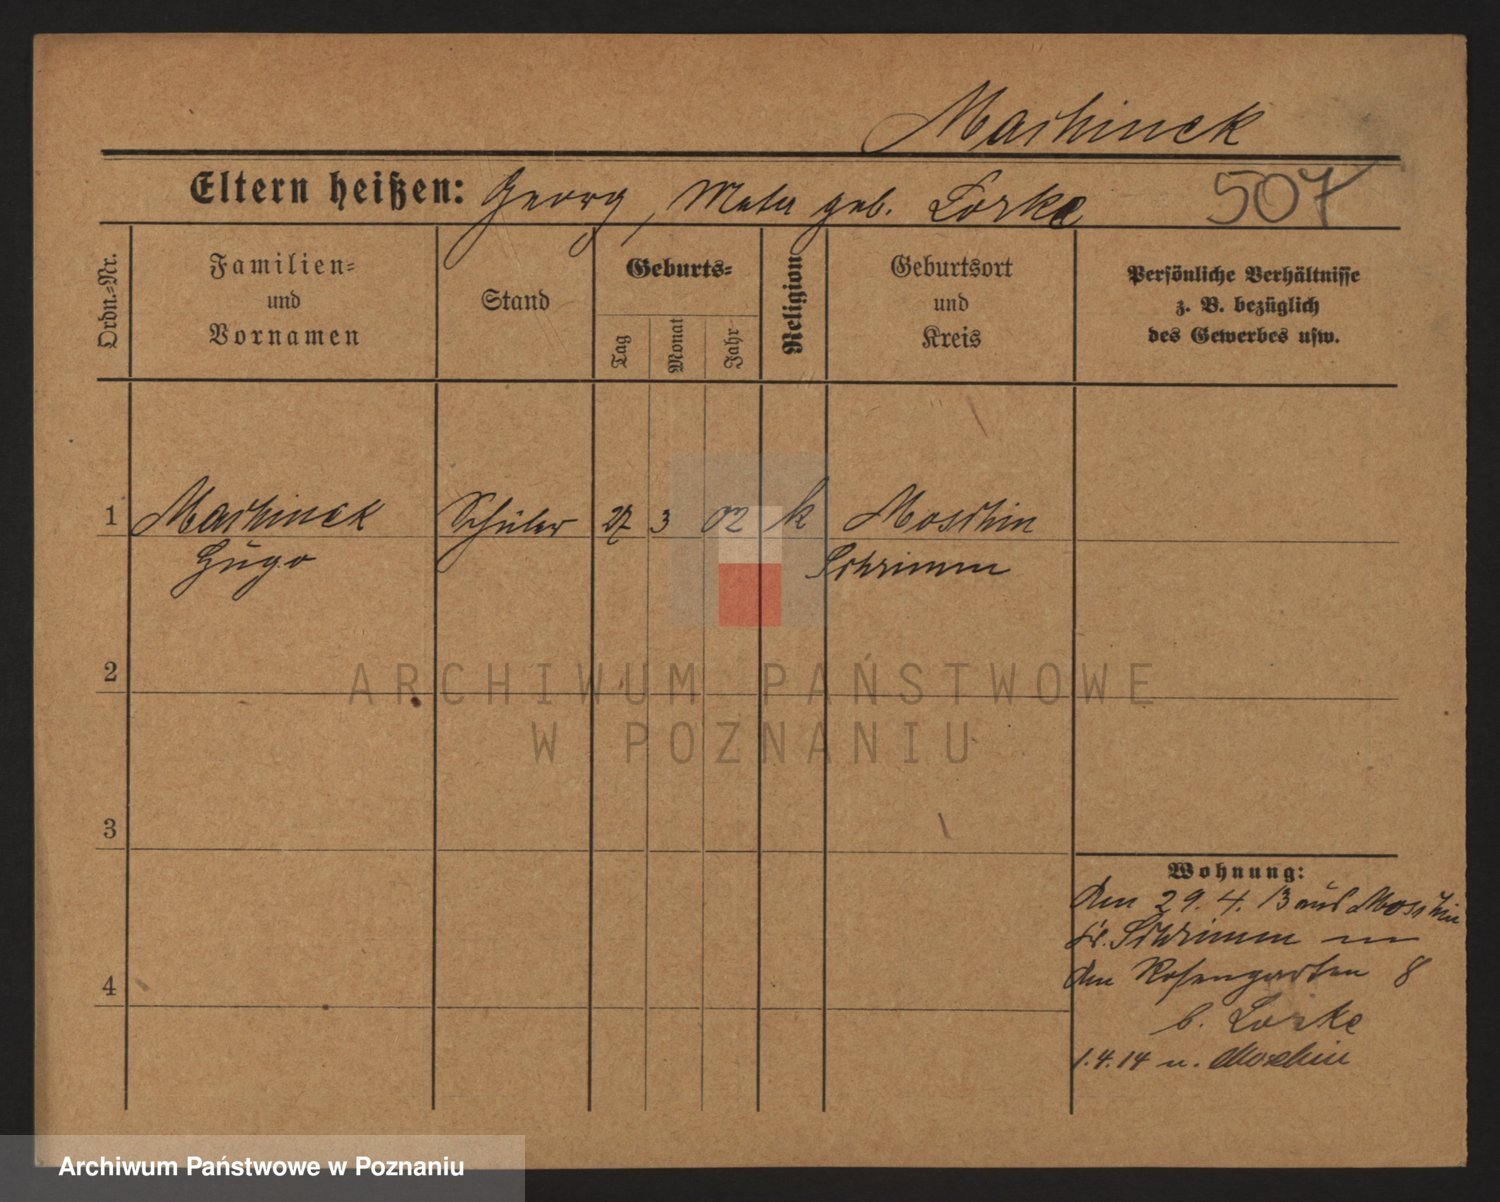 Maschinek
Eltern heißen: Georg, Meta geb. Lorke
507
Ordn.-Nr.
Familien-
und
Vornamen
Stand
Geburts-
Tag
Monat
Jahr
Religion
Geburtsort
und
Kreis
Persönliche Verhältnisse
z. B. bezüglich
des Gewerbes usw.
1 Maschinek Schüler 27 3 02 k Moschin
Hugo Schrimm
2
ARCHIWUM PAŃSTWOWE
W POZNANIU
3
Wohnung:
den 29. 4. 13 aus Moschin
Kr. Schrimm
den Rosengarten 8
4
b. Lorke
1.4.14 n. Moschin
Archiwum Państwowe w Poznaniu